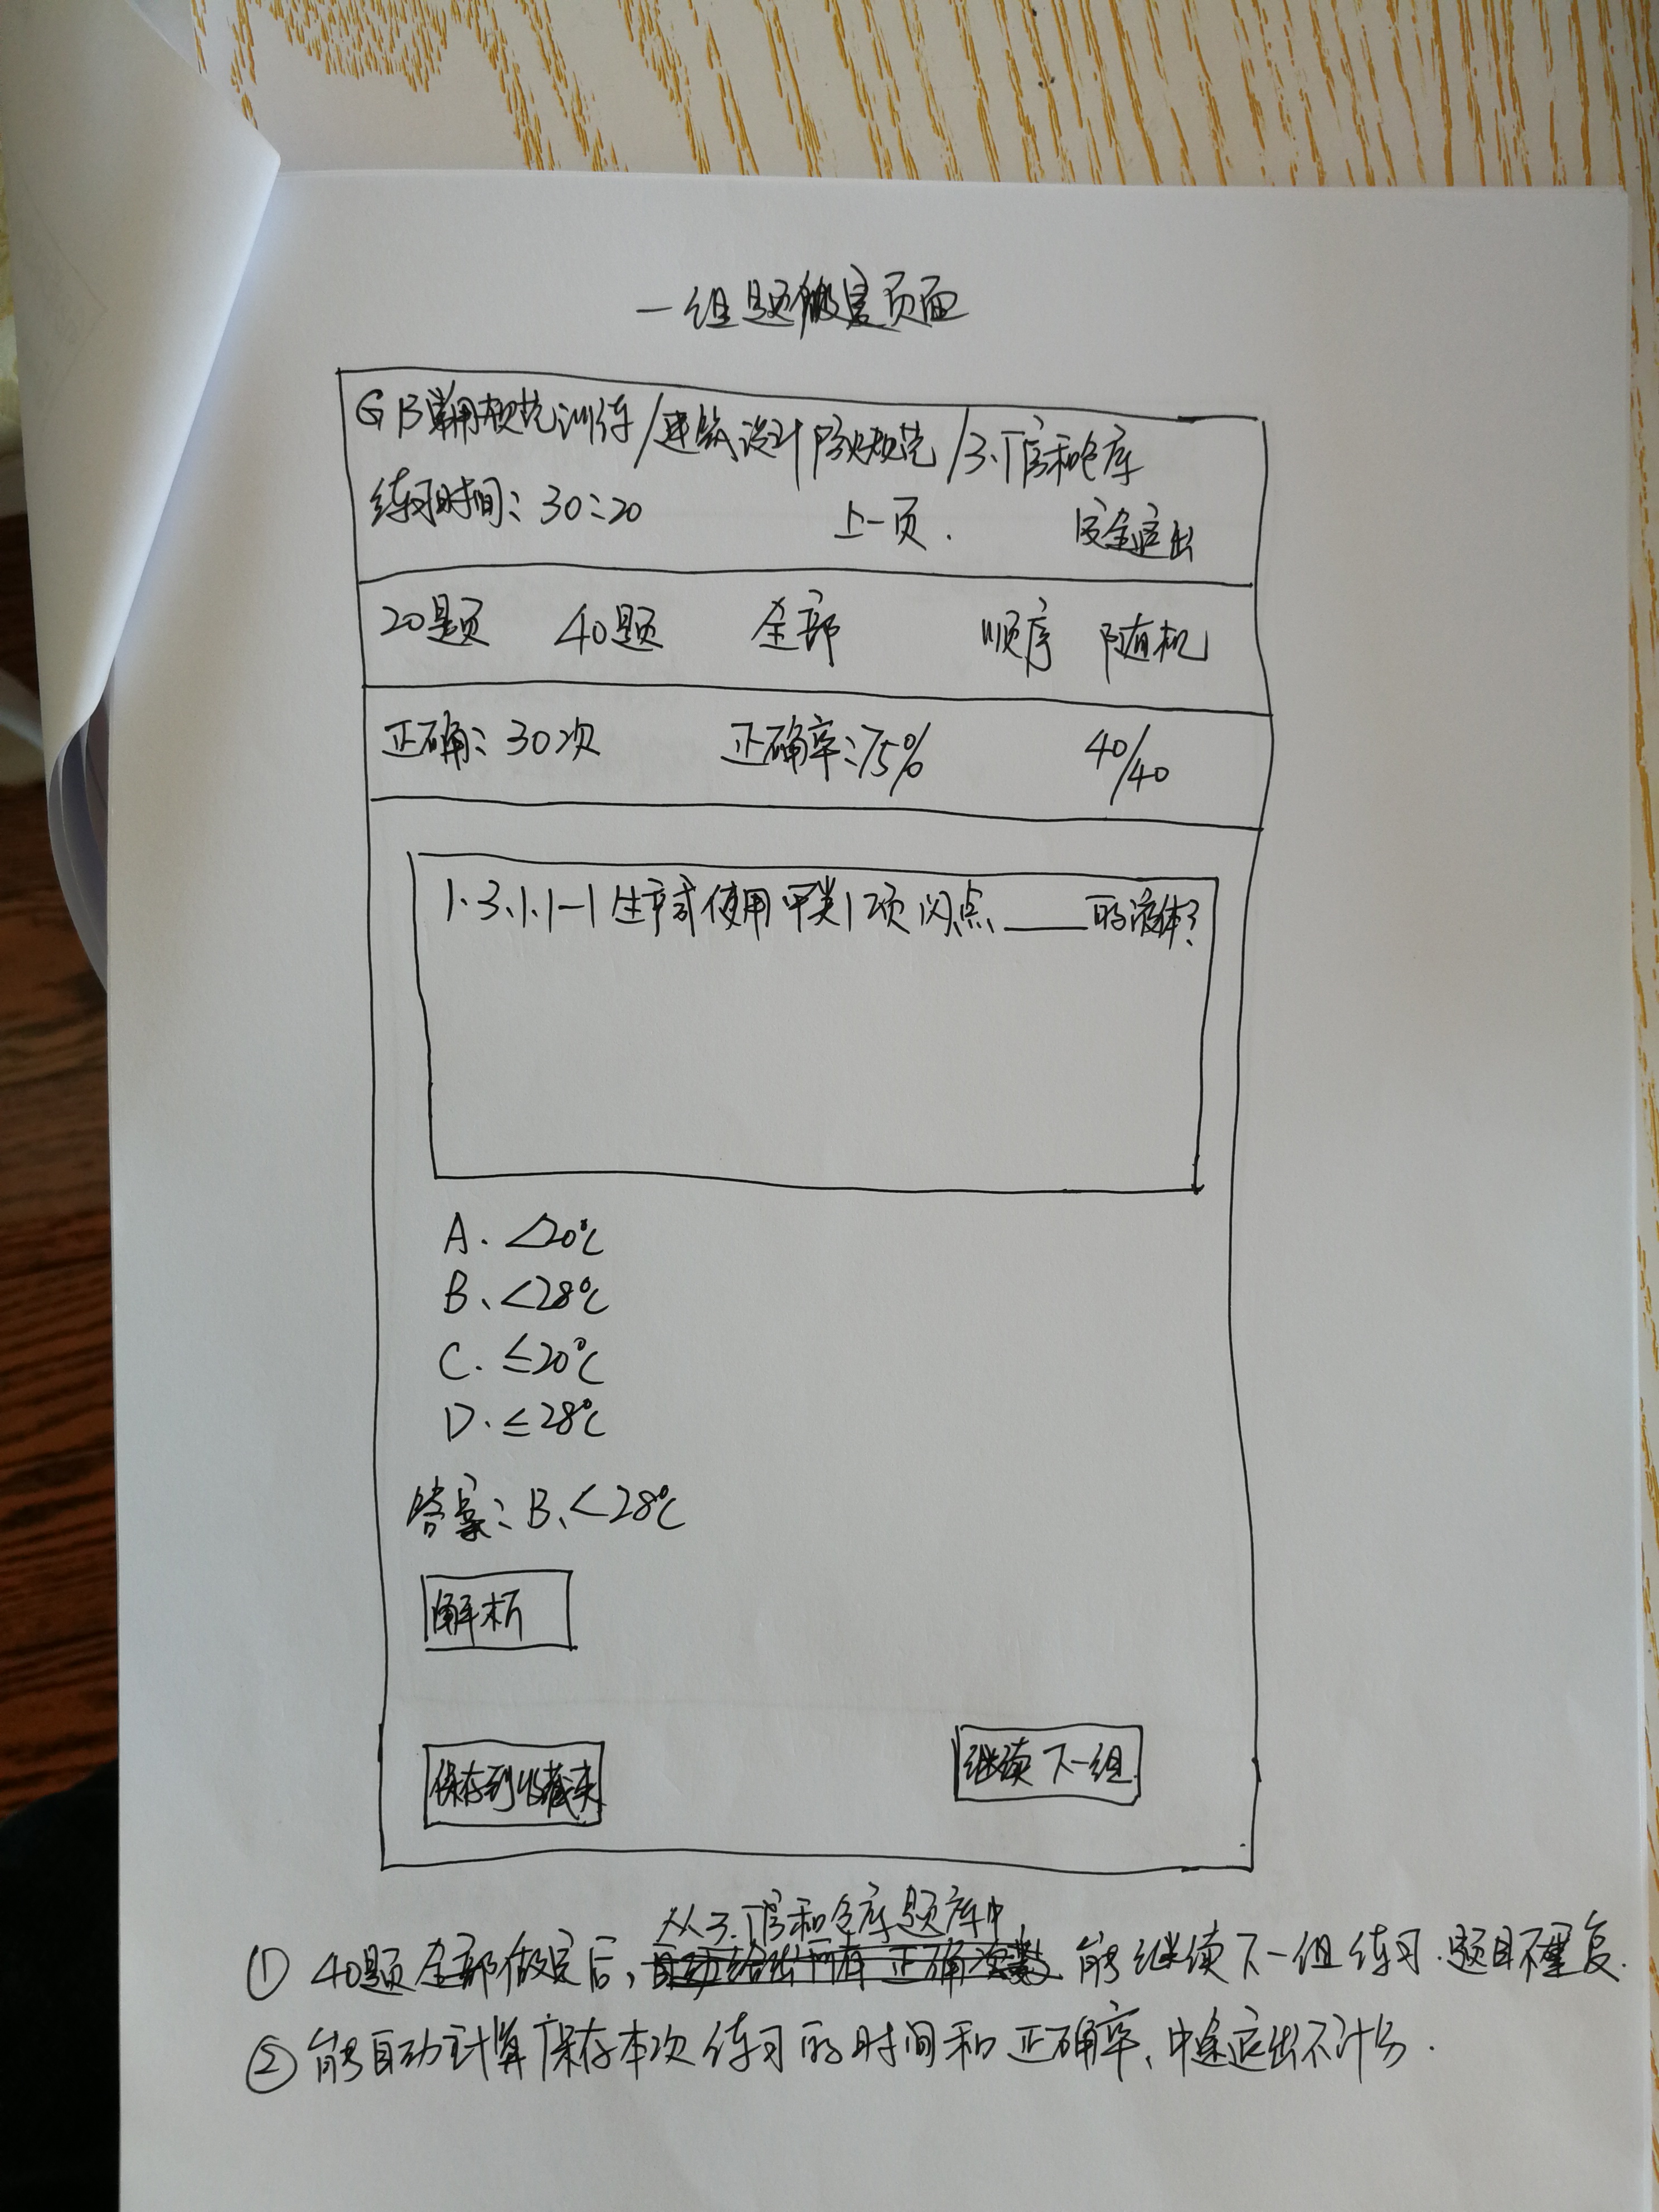 一组题做完页面
GB常用规范训练/建筑设计防火规范/3.厂房和仓库
练习时间：30:20 上一页. 安全退出
20题 40题 全部 顺序 随机
正确：30次 正确率：75% 40/40
1.3.1.1-1 生产或使用甲类1项闪点____的液体？
A. <20℃
B、<28℃
C. ≤20℃
D. ≤28℃
答案：B、<28℃
解析
保存到收藏夹 继续下一组
从3.厂房和仓库题库中
① 40题全部做完后，自动给出所有正确次数 能继续下一组练习.题目不重复.
② 能自动计算保存本次练习的时间和正确率、中途退出不计分.